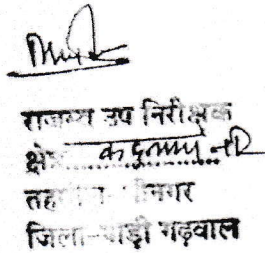 राजस्व उप निरीक्षक
क्षेत्र
तहसील श्रीनगर
जिला-पौड़ी गढ़वाल